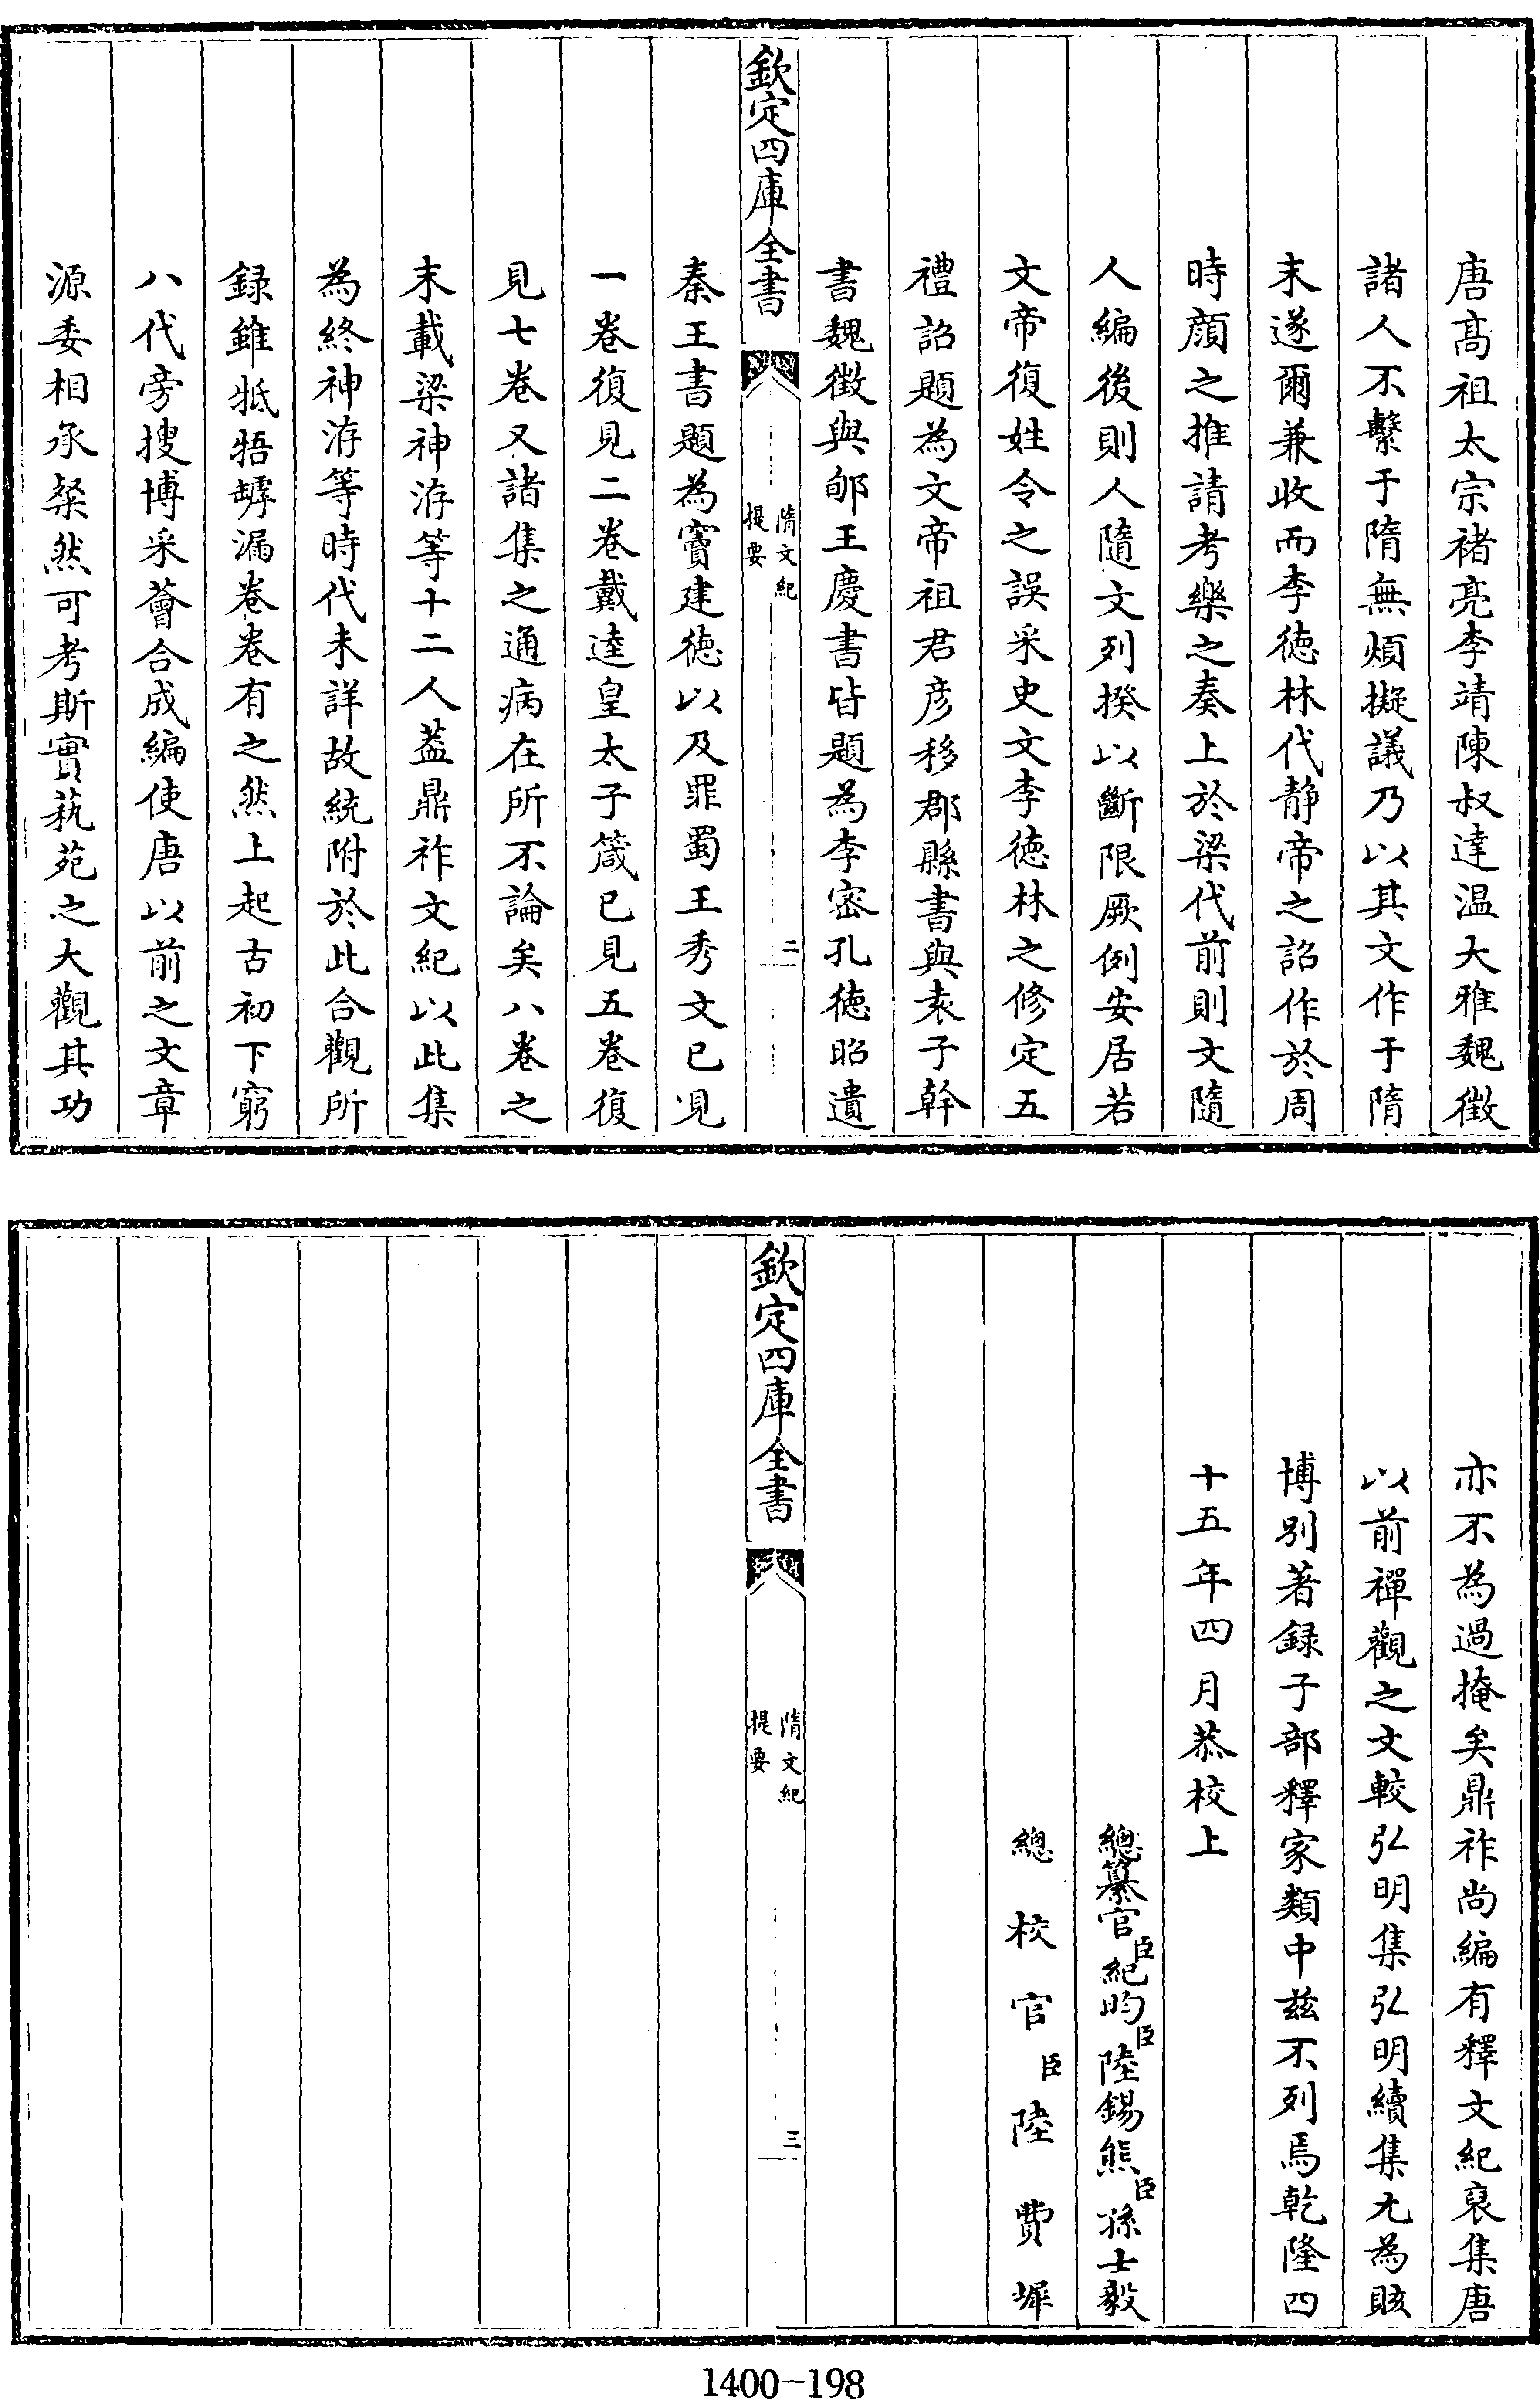 唐髙祖太宗褚亮李靖陳叔達温大雅魏徴
諸人不繫于隋無煩擬議乃以其文作于隋
末遂爾兼收而李徳林代静帝之詔作於周
時顔之推請考樂之奏上於梁代前則文隨
人編後則人隨文列揆以斷限厥例安居若
文帝復姓令之誤采史文李徳林之修定五
禮詔題為文帝祖君彦移郡縣書與袁子幹
書魏徴與郇王慶書皆題為李宻孔徳昭遺
欽定四庫全書
隋文紀
提要
二
秦王書題為竇建徳以及罪蜀王秀文已見
一卷復見二卷戴逵皇太子箴已見五卷復
見七卷又諸集之通病在所不論矣八卷之
末載梁神洊等十二人葢鼎祚文紀以此集
為終神洊等時代未詳故統附於此合觀所
録雖牴牾罅漏卷卷有之然上起古初下窮
八代旁搜博采薈合成編使唐以前之文章
源委相承粲然可考斯實藝苑之大觀其功
亦不為過掩矣鼎祚尚編有釋文紀裒集唐
以前禪觀之文較弘明集弘明續集尤為賅
博别著録子部釋家類中兹不列焉乾隆四
十五年四月恭校上
總纂官臣紀昀臣陸錫熊臣孫士毅
總校官臣陸費墀
欽定四庫全書
隋文紀
提要
三
1400-198